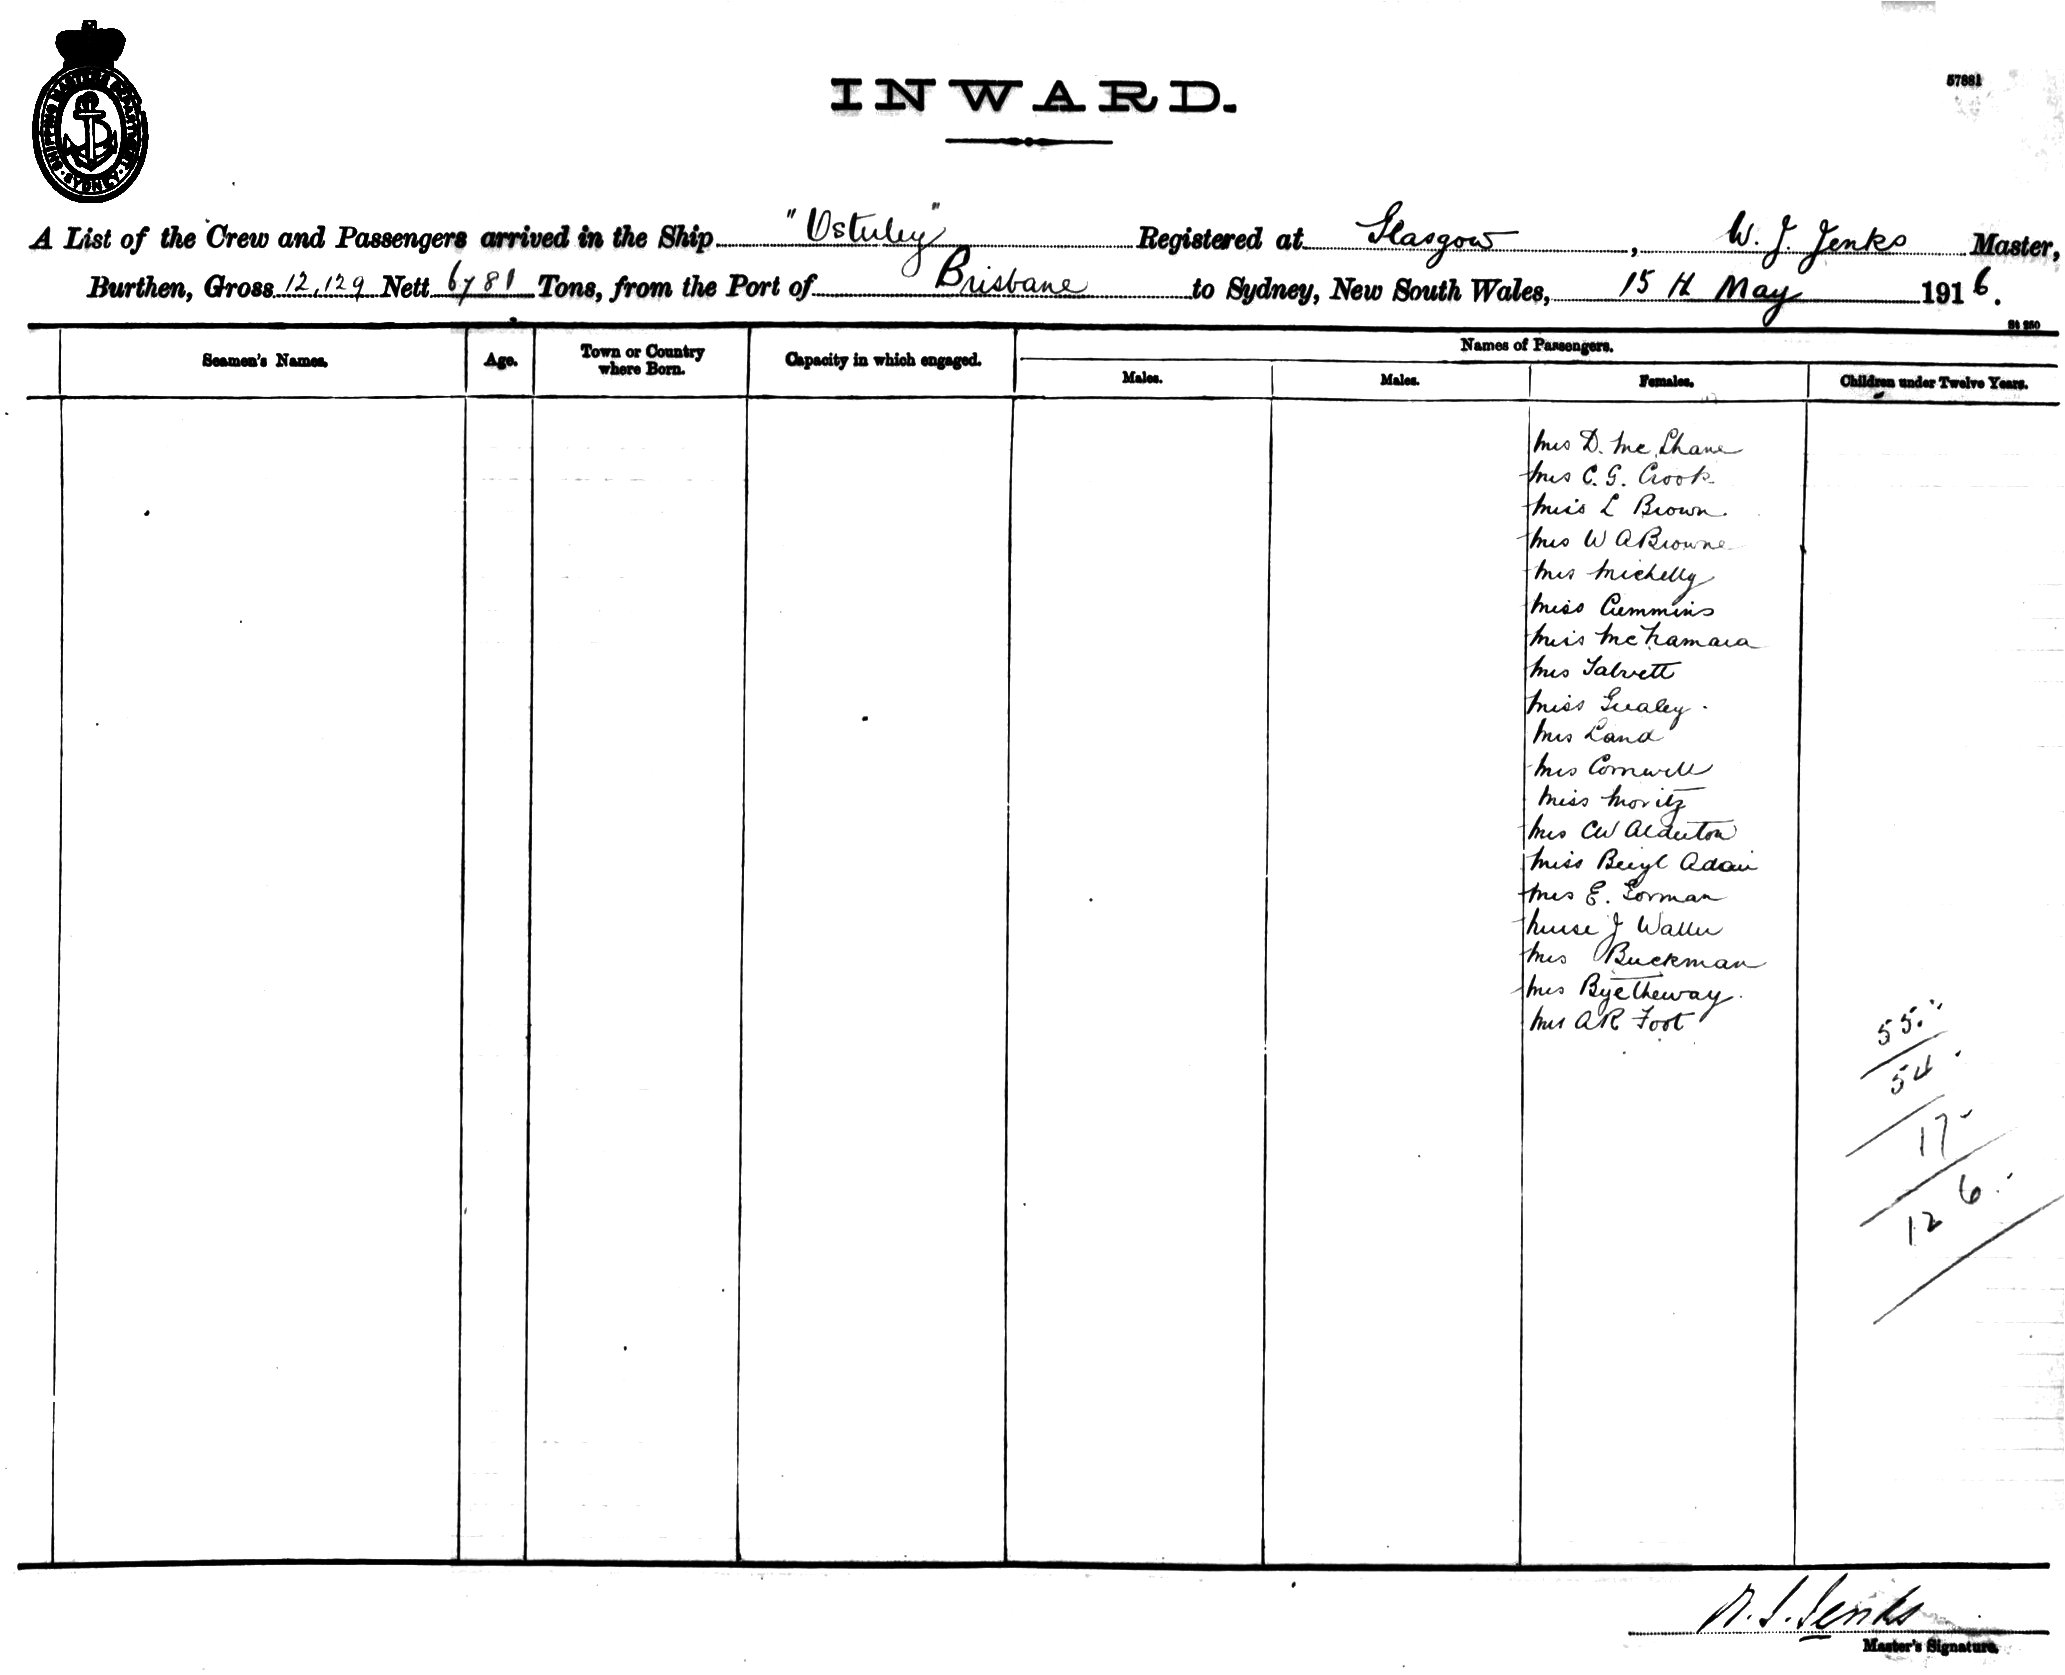 INWARD.
57881
SHIPPING MASTERS DEPARTMENT · SYDNEY ·
A List of the Crew and Passengers arrived in the Ship "Osterley" Registered at Glasgow, W. J. Jenks Master,
Burthen, Gross 12,129 Nett 6781 Tons, from the Port of Brisbane to Sydney, New South Wales, 15th May 1916.
Seamen's Names. Age. Town or Country where Born. Capacity in which engaged. Names of Passengers.
Males. Males. Females. Children under Twelve Years.
Mrs D. McShane
Mrs C. G. Crook
Miss L Brown.
Mrs W A Browne
Mrs Michelly
Miss Cummins
Miss McNamara
Mrs Talvett
Miss Guealey.
Mrs Land
Mrs Cornwell
Miss Moritz
Mrs CW Alderton
Miss Beryl Adair
Mrs E. Gorman
Nurse J Waller
Mrs Buckman
Mrs Byetheway.
Mrs AR Foot
55
54
17
126
W. J. Jenks
Master's Signature.